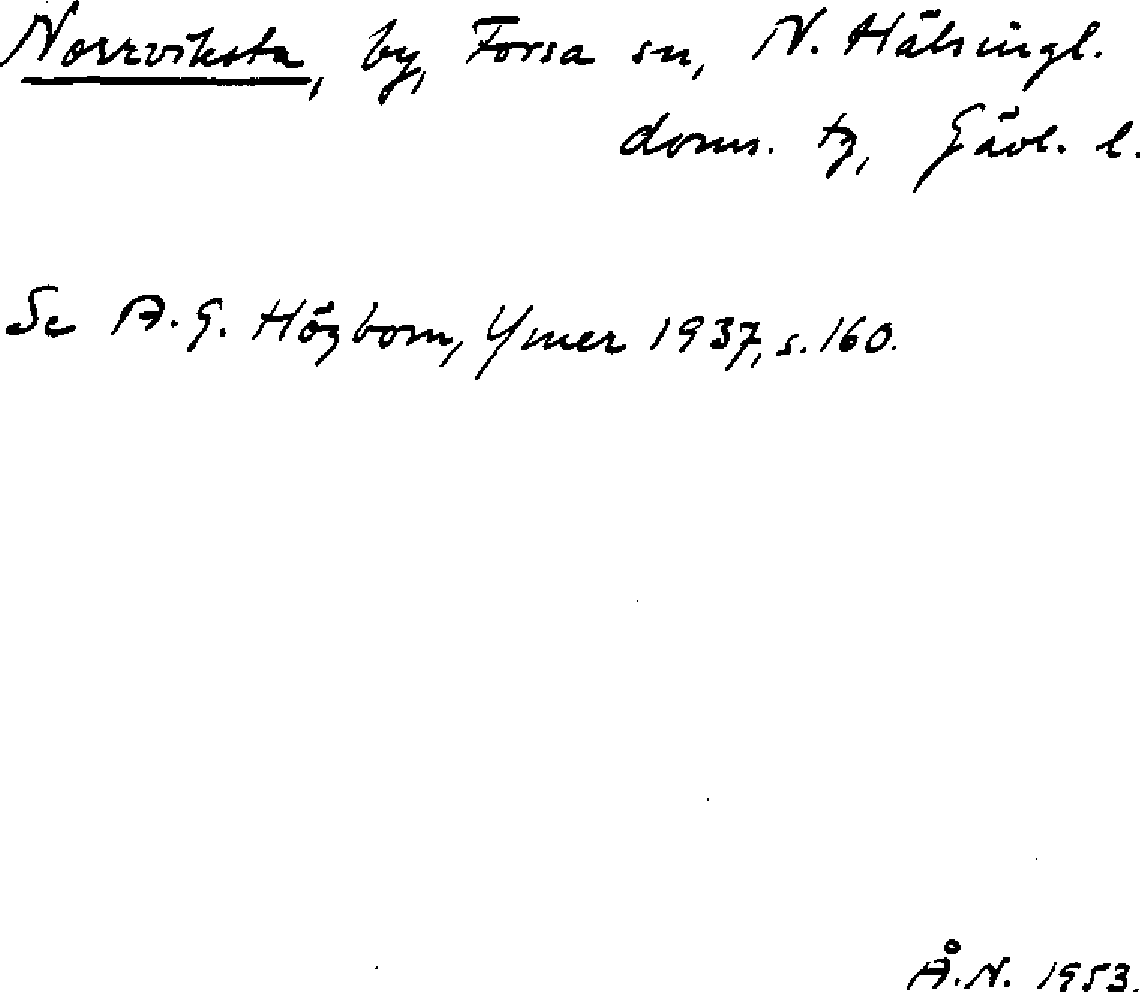 Norrviksta, by, Forsa sn, N. Hälsingl.
doms. tg, Gävl. l.
Se A. G. Högbom, Ymer 1937, s. 160.
Å.N. 1953.